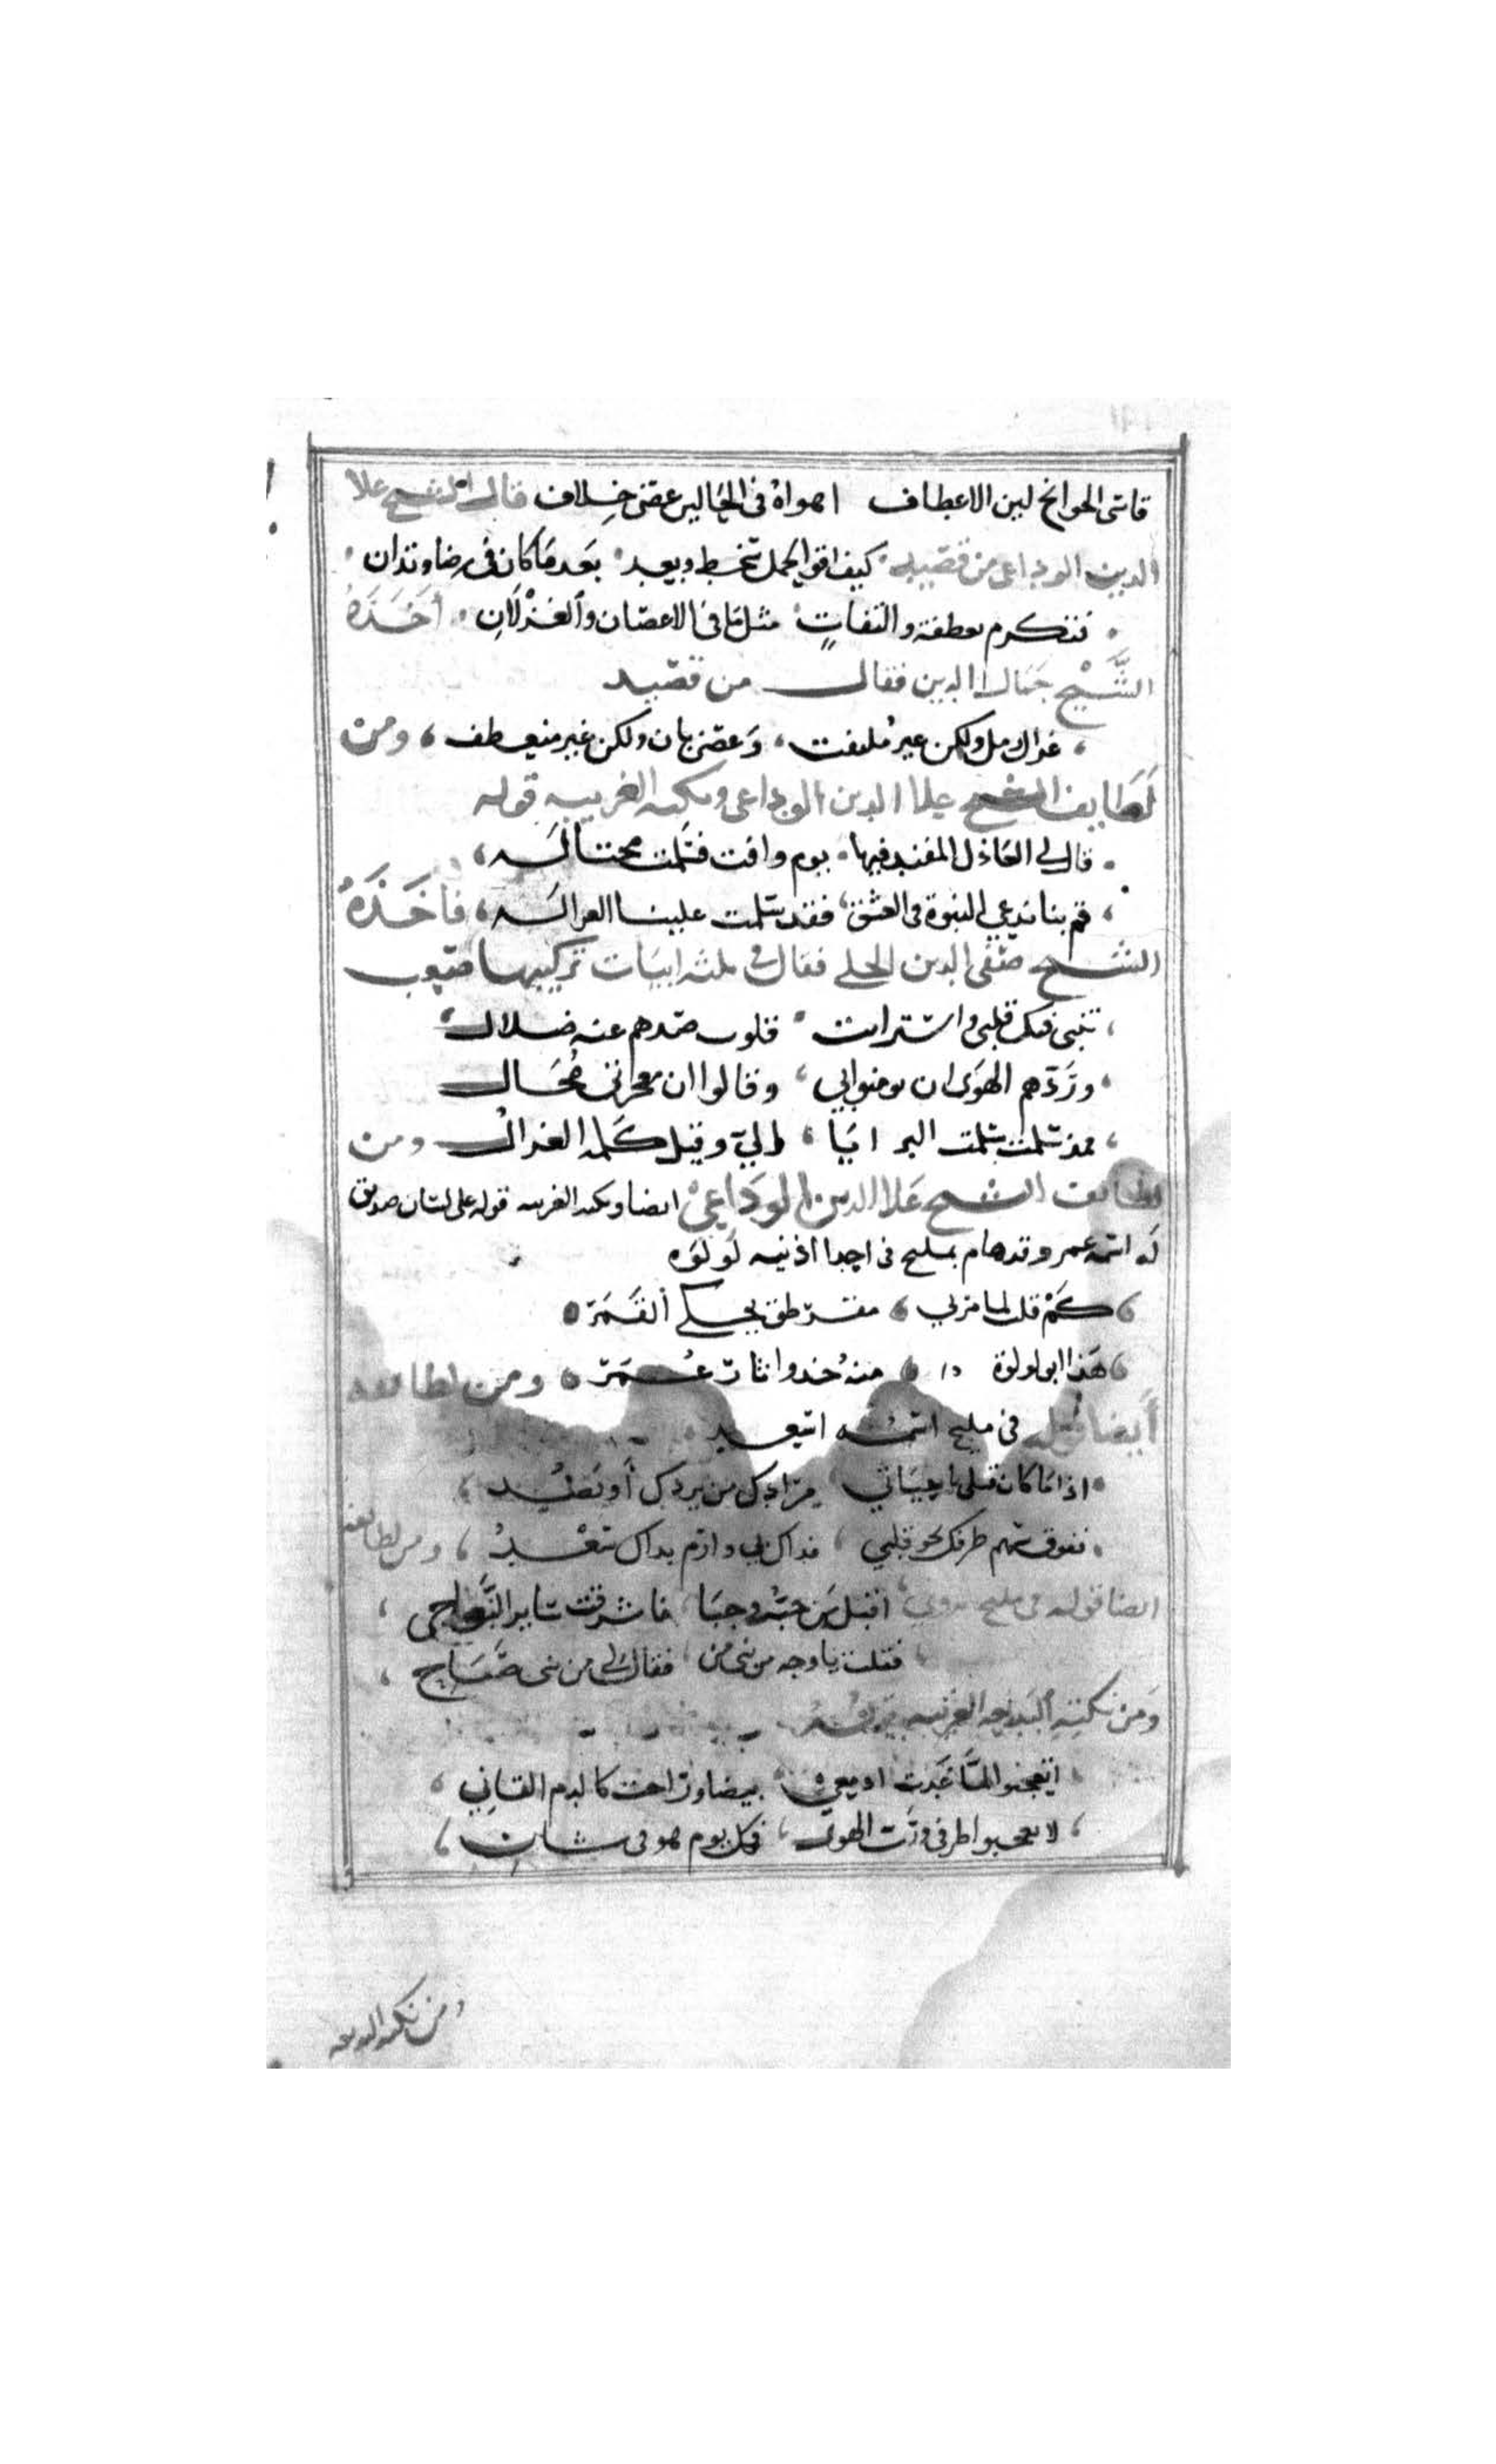 قاسى الجوانح لين الاعطاف اهواه فى الحالين غصن خلاف قال الشيخ علا
الدين الوداعى من قصيده كيف اقوى لحمل سخط وبعد بعد ما كان فى رضا وتدان
فتكرم بعطفة والتفاتٍ مثل ما فى الاغصان والغزلان أَخَذَهُ
الشَّيْخ جمال الدين فقال من قصيد
غزال رمل ولكن غير ملتفت وغصن بان ولكن غير منعطف ومن
لَطَايف الشيخ علا الدين الوداعى ونكته الغريبه قوله
قال لى العاذل المفند فيها يوم وافت فسلمت مختاله
قم بنا ندعى النبوة فى العشق فقد سلمت علينا الغزاله فأَخَذَهُ
الشيخ صفى الدين الحلى فقال فى ثلثه ابيات تركيبها صعب
تنبى فيك قلبى واسترابت قلوب صدهم عنه ضلال
وردهم الهوى ان يومنوا بى وقالوا ان معجزتى مُحَال
فمذ سلمت سلمت البرايا الىّ وقيل كلمه الغزال ومن
لطايف الشيخ علا الدين الوداعىْ ايضا ونكته الغريبه قوله على لسان صديق
له اسمه عمر وقد هام بمليح فى احدا اذنيه لولوه
كَمْ قلت لما مر بى مقرطق يحكى ألقَمَرْ
هَذا ابو لولوة منه خُذوا ثار عُمَرْ ومن لطايفه
أيضا قوله فى مليح اسمه اسعيد
اذا ما كان قتلى يا حياتى مرادك من يردك أو
ففوق سهم طرفك نحو قلبى فداك بى وارم يداك سَعْدُ ومن لطايفه
ايضا قوله فى مليح بدوى اقبل من حبّه وحيا فاشرقت ساير النَّواحى
فقلت يا وجه من بنى من فقال لى من بنى صَبَاح
وَمن نكته البديعه الغريبه
اتعجبوا لما غَدت ادمعى بيضا وراحت كالدم القانى
لا تعجبوا طرفى ورت الهوى فكل يوم هو فى شان
ومن نكته البديعه